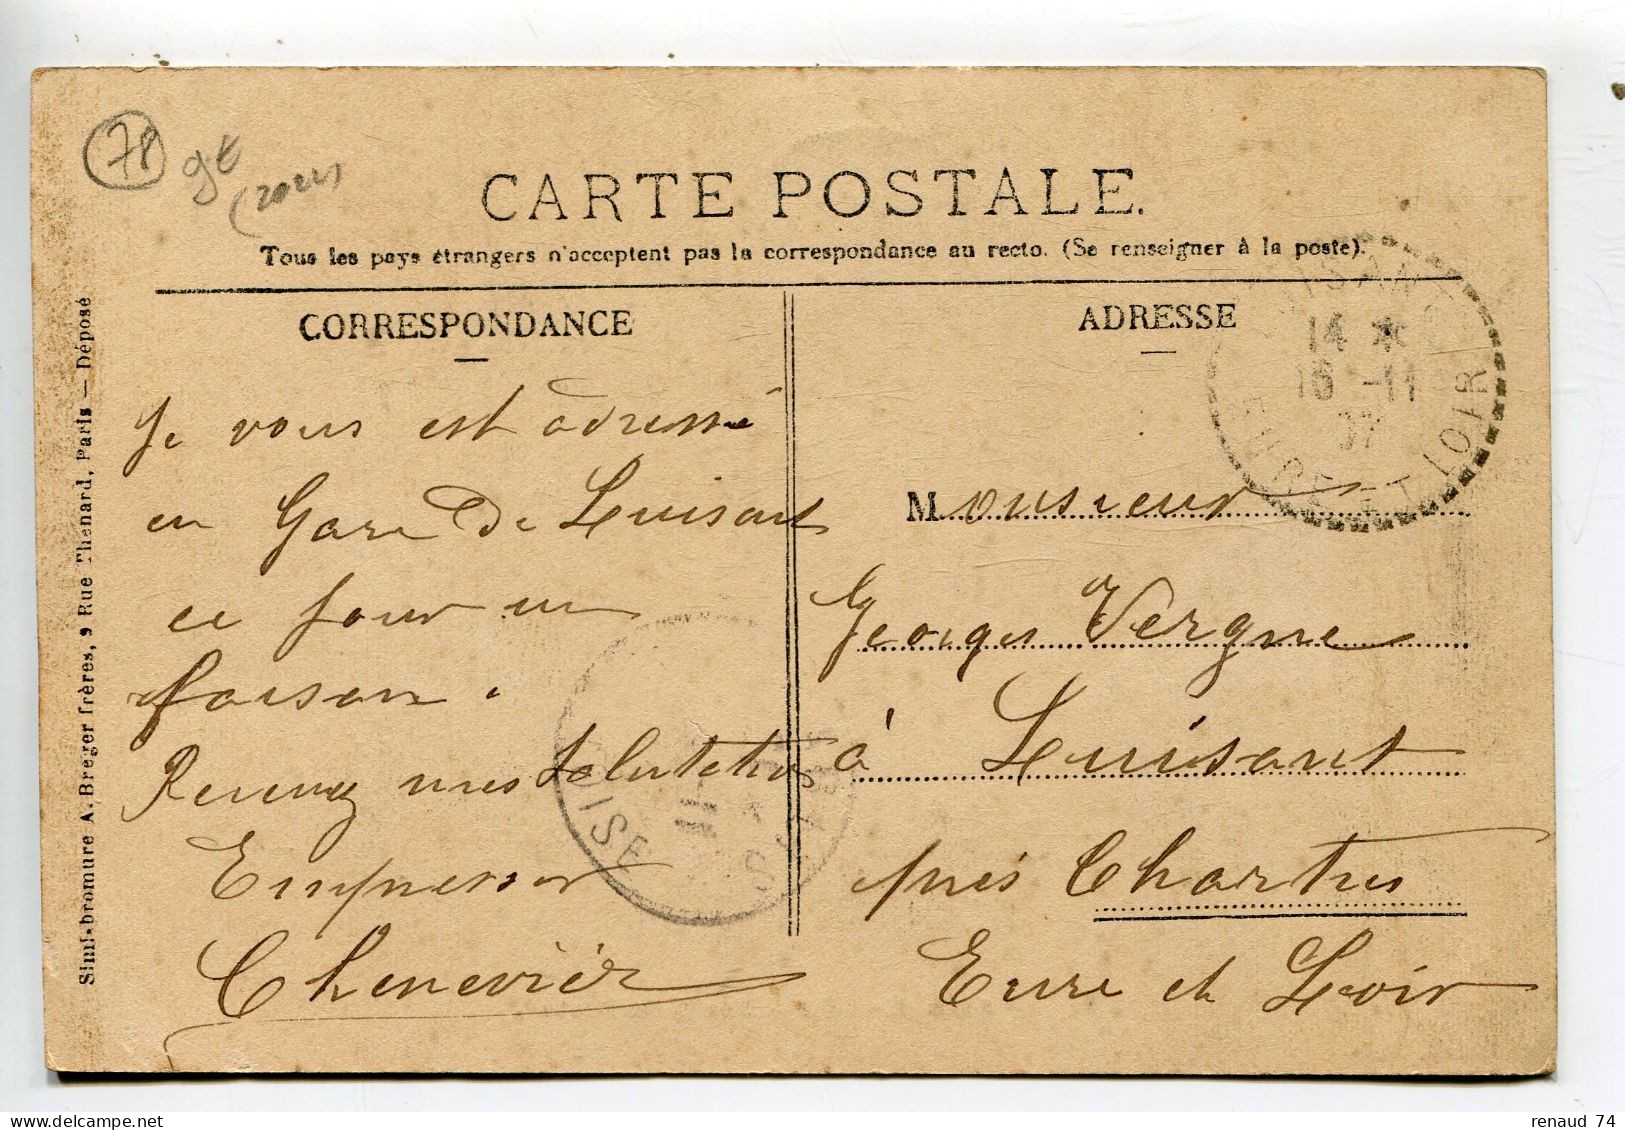 78
9€
CARTE POSTALE.
Tous les pays étrangers n'acceptent pas la correspondance au recto. (Se renseigner à la poste).
CORRESPONDANCE
Je vous est adressé
en Gare de Luisant
ce jour un
faisan.
Recevez mes Salutations
Empressés
Chenevier
ADRESSE
14 *
16 -11
07
EURE ET LOIR
Monsieur
Georges Vergne
à Luisant
près Chartres
Eure et Loir
OISE
Simi-bromure A. Breger frères, 9 Rue Thenard, Paris — Déposé
renaud 74